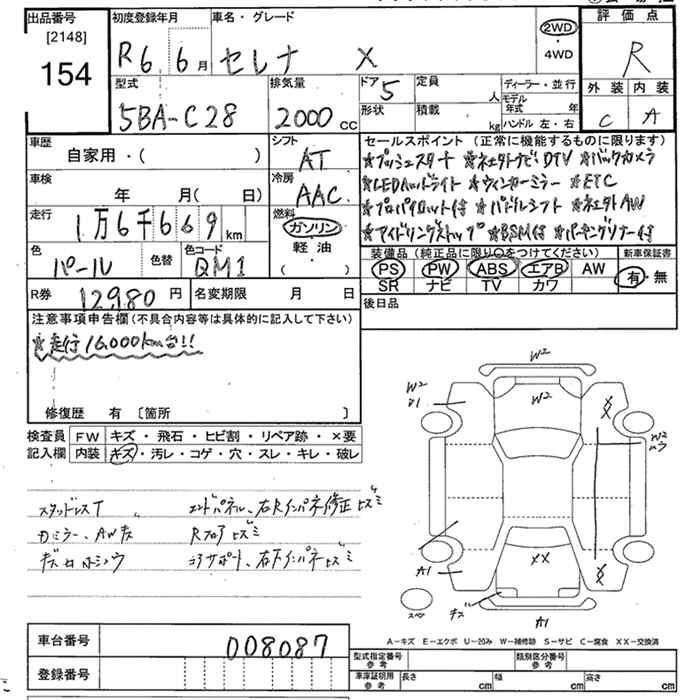 出品番号
[2148]
154
初度登録年月
R6 6月
車名・グレード
セレナ X
2WD
・
4WD
評価点
R
外装 内装
C A
型式
5BA-C28
排気量
2000 cc
ドア 5
形状
定員 人
積載 kg
ディーラー・並行
モデル年式 年
ハンドル 左・右
車歴
自家用・( )
シフト
AT
車検
年 月( 日)
冷房
AAC
走行
1万6千669 km
燃料
ガソリン
軽油
・
( )
色
パール
色替
色コード
QM1
R券 12980 円
名変期限 月 日
セールスポイント (正常に機能するものに限ります)
★プッシュスタート ★ネエタナビDTV ★バックカメラ
★LEDヘッドライト ★ウィンカーミラー ★ETC
★プロパイロット付 ★パドルシフト ★ネエタAW
★アイドリングストップ ★BSM付 ★パーキングソナー付
装備品(純正品に限り○をつけてください) 新車保証書
PS PW ABS エアB AW
SR ナビ TV カワ
有・無
後日品
注意事項申告欄(不具合内容等は具体的に記入して下さい)
★走行16,000km台!!
修復歴 有 [箇所 ]
検査員 FW キズ・飛石・ヒビ割・リペア跡・×要
記入欄 内装 キズ・汚レ・コゲ・穴・スレ・キレ・破レ
スタッドレスT エンドパネル、右Rインパネ修正ヒズミ
Dミラー、AWキズ Rフロアヒズミ
コアサポート、右Fインパネヒズミ
W2
W2
W2
A1
W2
A1
XX
キズ
スペア
A1
A-キズ E-エクボ U-凹み W-補修跡 S-サビ C-腐食 XX-交換済
車台番号 008087
登録番号
型式指定番号
参考
類別区分番号
参考
車庫証明用
参考
長さ cm
幅 cm
高さ cm